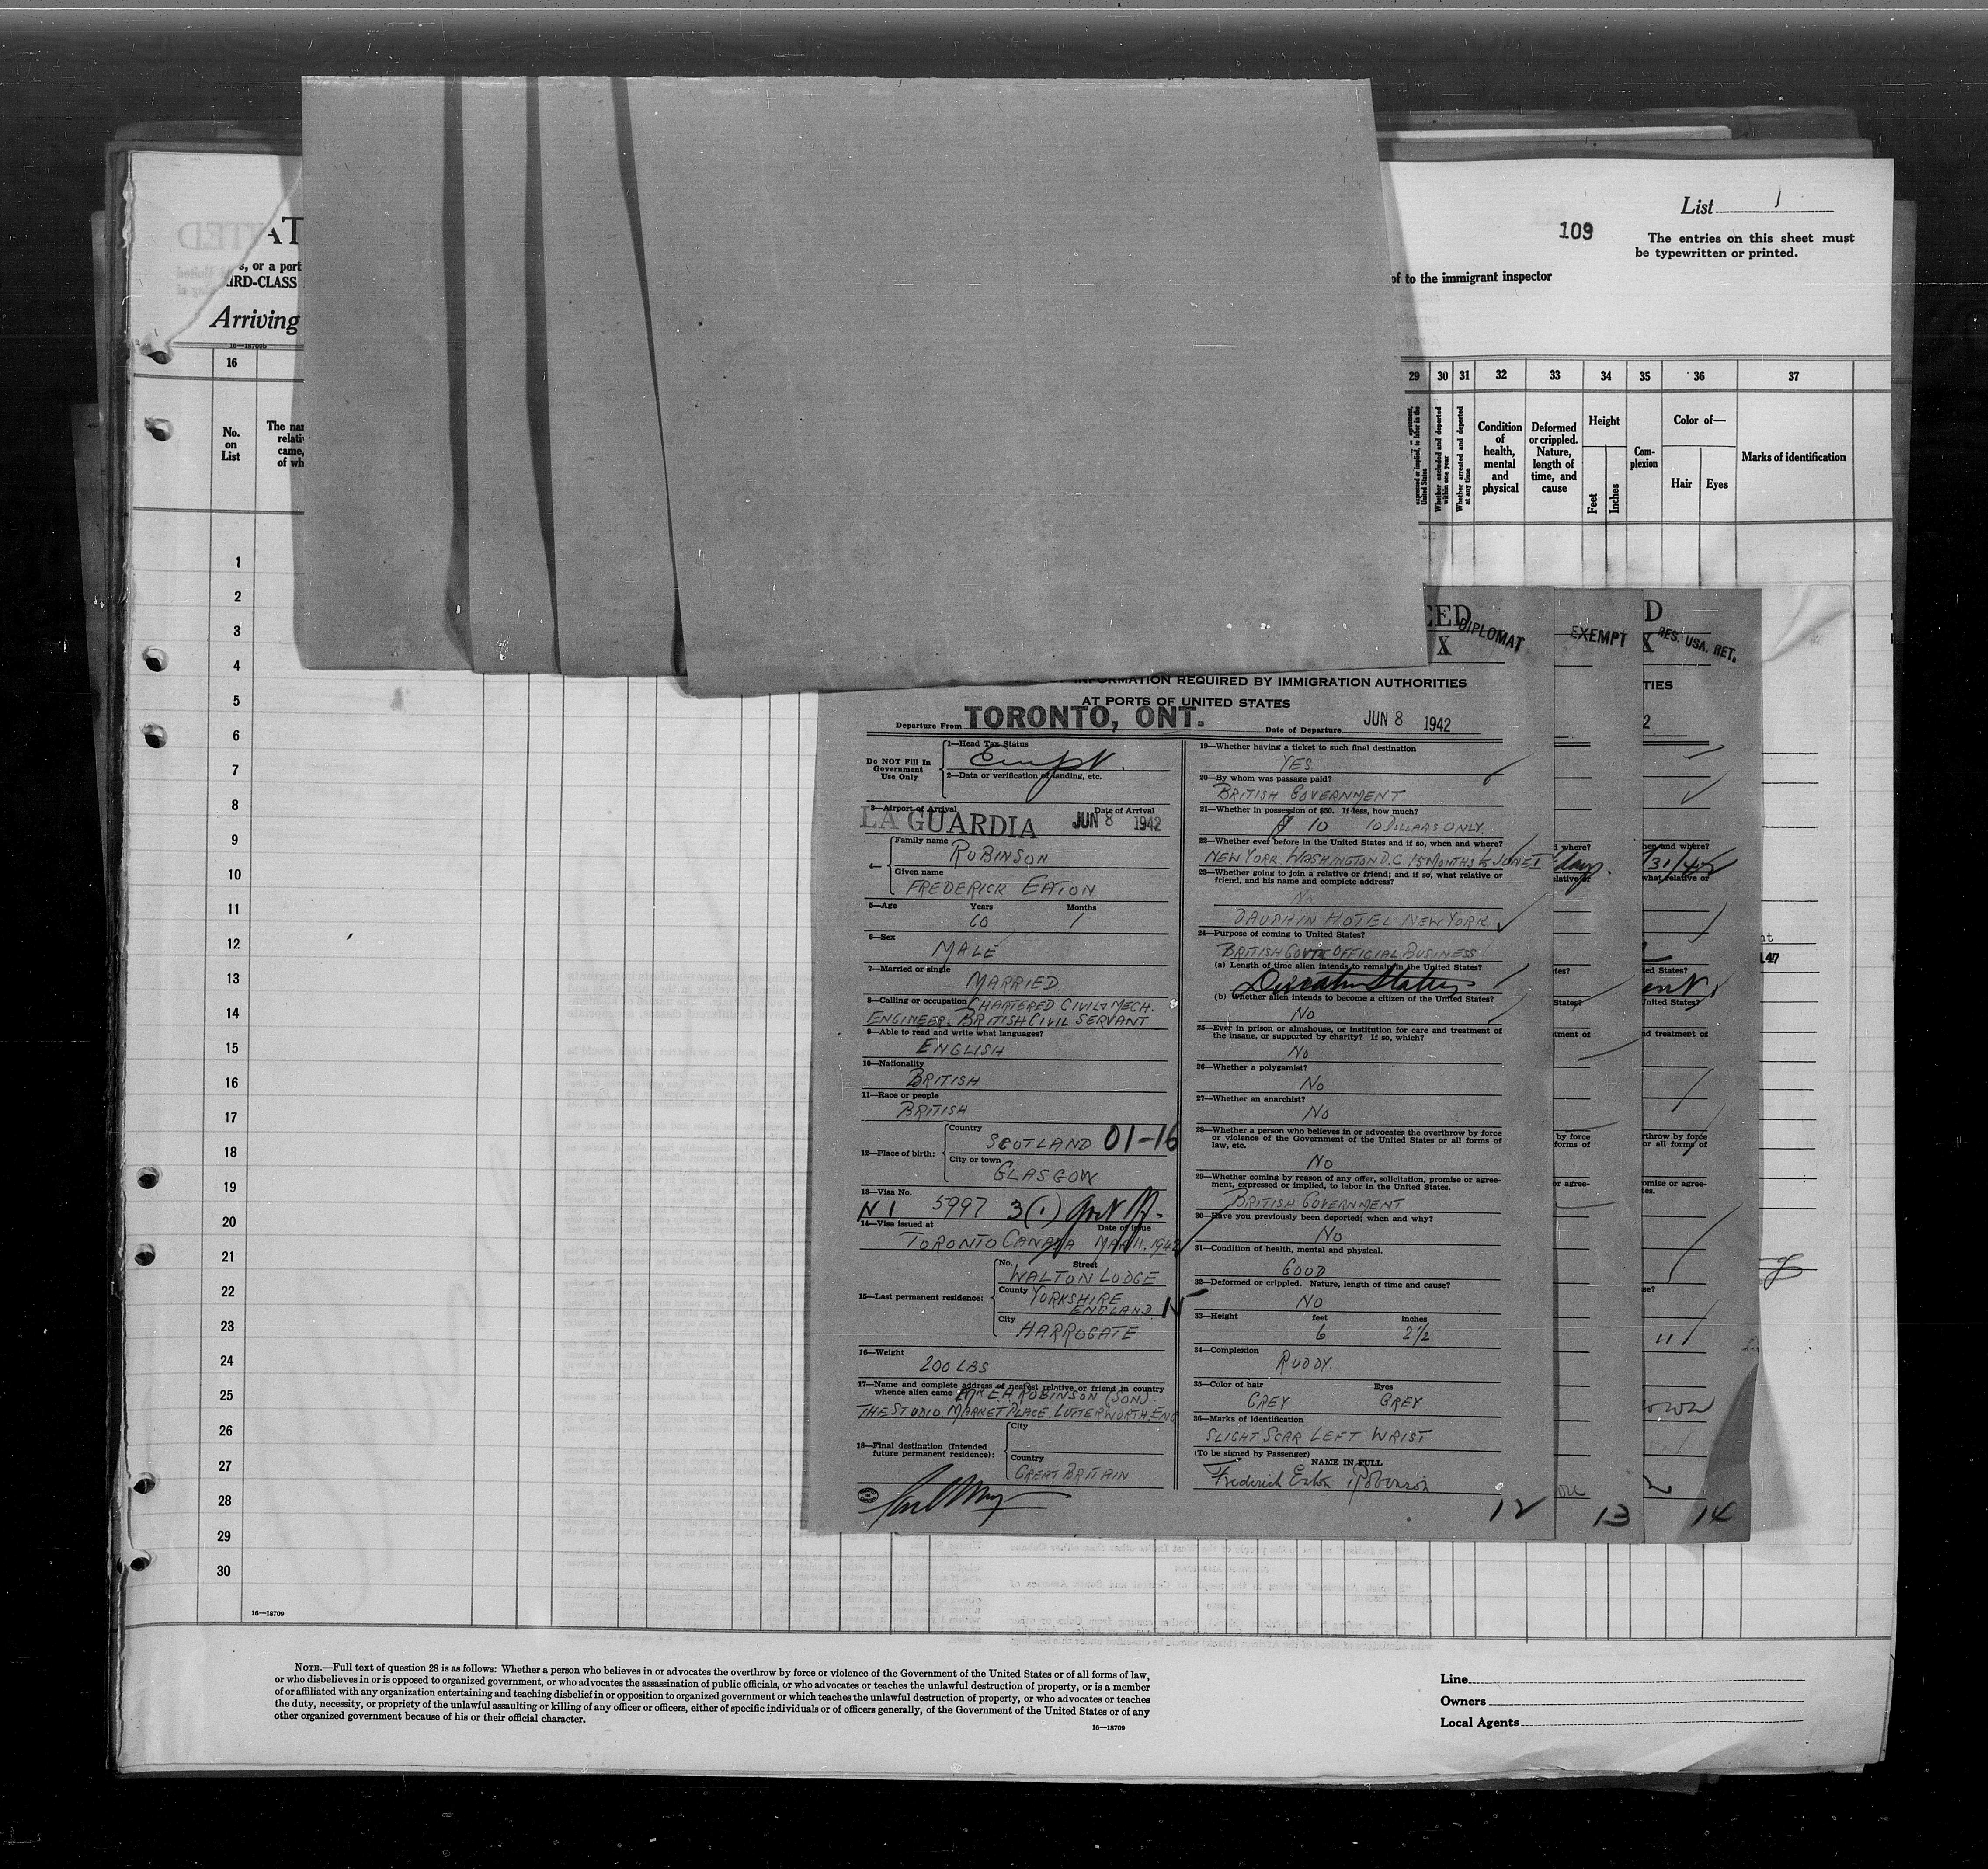 List 1
109
The entries on this sheet must
be typewritten or printed.
s, or a port
IRD-CLASS
of to the immigrant inspector
Arriving
16-18709b
16
29 30 31 32 33 34 35 36 37
No.
on
List
The nam
relativ
came,
of wh
expressed or implied, to labor in the United States
Whether excluded and deported within one year
Whether arrested and deported at any time
Condition
of
health,
mental
and
physical
Deformed
or crippled.
Nature,
length of
time, and
cause
Height
Feet
Inches
Com-
plexion
Color of—
Hair
Eyes
Marks of identification
1
2
3
4
5
6
7
8
9
10
11
12
13
14
15
16
17
18
19
20
21
22
23
24
25
26
27
28
29
30
16—18709
DIPLOMAT
X
EXEMPT
D
RES. USA. RET.
INFORMATION REQUIRED BY IMMIGRATION AUTHORITIES
AT PORTS OF UNITED STATES
Departure From TORONTO, ONT.
Date of Departure JUN 8 1942
Do NOT Fill In
Government
Use Only
1—Head Tax Status
Exempt.
2—Data or verification of landing, etc.
3—Airport of Arrival Date of Arrival
LA GUARDIA JUN 8 1942
4—
Family name
ROBINSON
Given name
FREDERICK EATON
5—Age Years Months
60 1
6—Sex
MALE
7—Married or single
MARRIED
8—Calling or occupation CHARTERED CIVIL & MECH.
ENGINEER. BRITISH CIVIL SERVANT
9—Able to read and write what languages?
ENGLISH
10—Nationality
BRITISH
11—Race or people
BRITISH
12—Place of birth:
Country
SCOTLAND 01-16
City or town
GLASGOW
13—Visa No.
N 1 5997 3(1)
14—Visa issued at Date of issue
TORONTO CANADA MAR 11. 1942
15—Last permanent residence:
No. Street
WALTON LODGE
County YORKSHIRE
ENGLAND
City
HARROGATE
16—Weight
200 LBS
17—Name and complete address of nearest relative or friend in country
whence alien came MR E A ROBINSON (SON)
THE STUDIO MARKET PLACE. LUTTERWORTH. ENG
18—Final destination (Intended
future permanent residence):
City
Country
GREAT BRITAIN
19—Whether having a ticket to such final destination
YES
20—By whom was passage paid?
BRITISH GOVERNMENT
21—Whether in possession of $50. If less, how much?
$ 10 10 DOLLARS ONLY.
22—Whether ever before in the United States and if so, when and where?
NEW YORK. WASHINGTON D.C. 15 MONTHS to JUNE 1
23—Whether going to join a relative or friend; and if so, what relative or
friend, and his name and complete address?
No
DAUPHIN HOTEL NEW YORK
24—Purpose of coming to United States?
BRITISH GOVT OFFICIAL BUSINESS
(a) Length of time alien intends to remain in the United States?
(b) Whether alien intends to become a citizen of the United States?
No
25—Ever in prison or almshouse, or institution for care and treatment of
the insane, or supported by charity? If so, which?
No
26—Whether a polygamist?
No
27—Whether an anarchist?
No
28—Whether a person who believes in or advocates the overthrow by force
or violence of the Government of the United States or all forms of
law, etc.
No
29—Whether coming by reason of any offer, solicitation, promise or agree-
ment, expressed or implied, to labor in the United States.
BRITISH GOVERNMENT
30—Have you previously been deported; when and why?
No
31—Condition of health, mental and physical.
GOOD
32—Deformed or crippled. Nature, length of time and cause?
No
33—Height feet inches
6 2½
34—Complexion
RUDDY.
35—Color of hair Eyes
GREY GREY
36—Marks of identification
SLIGHT SCAR LEFT WRIST
(To be signed by Passenger)
NAME IN FULL
Frederick Eaton Robinson
12
13
14
NOTE.—Full text of question 28 is as follows: Whether a person who believes in or advocates the overthrow by force or violence of the Government of the United States or of all forms of law,
or who disbelieves in or is opposed to organized government, or who advocates the assassination of public officials, or who advocates or teaches the unlawful destruction of property, or is a member
of or affiliated with any organization entertaining and teaching disbelief in or opposition to organized government or which teaches the unlawful destruction of property, or who advocates or teaches
the duty, necessity, or propriety of the unlawful assaulting or killing of any officer or officers, either of specific individuals or of officers generally, of the Government of the United States or of any
other organized government because of his or their official character.
16—18709
Line
Owners
Local Agents